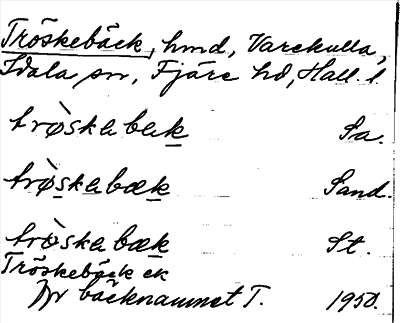 Tröskebäck, hmd, Varekulla,
Idala sn, Fjäre hd, Hall. l.
trø̀skabak Sa.
trø̀skabæk Sand.
trø̀skabæk St.
Tröskebäck ek
Jfr bäcknamnet T. 1950.